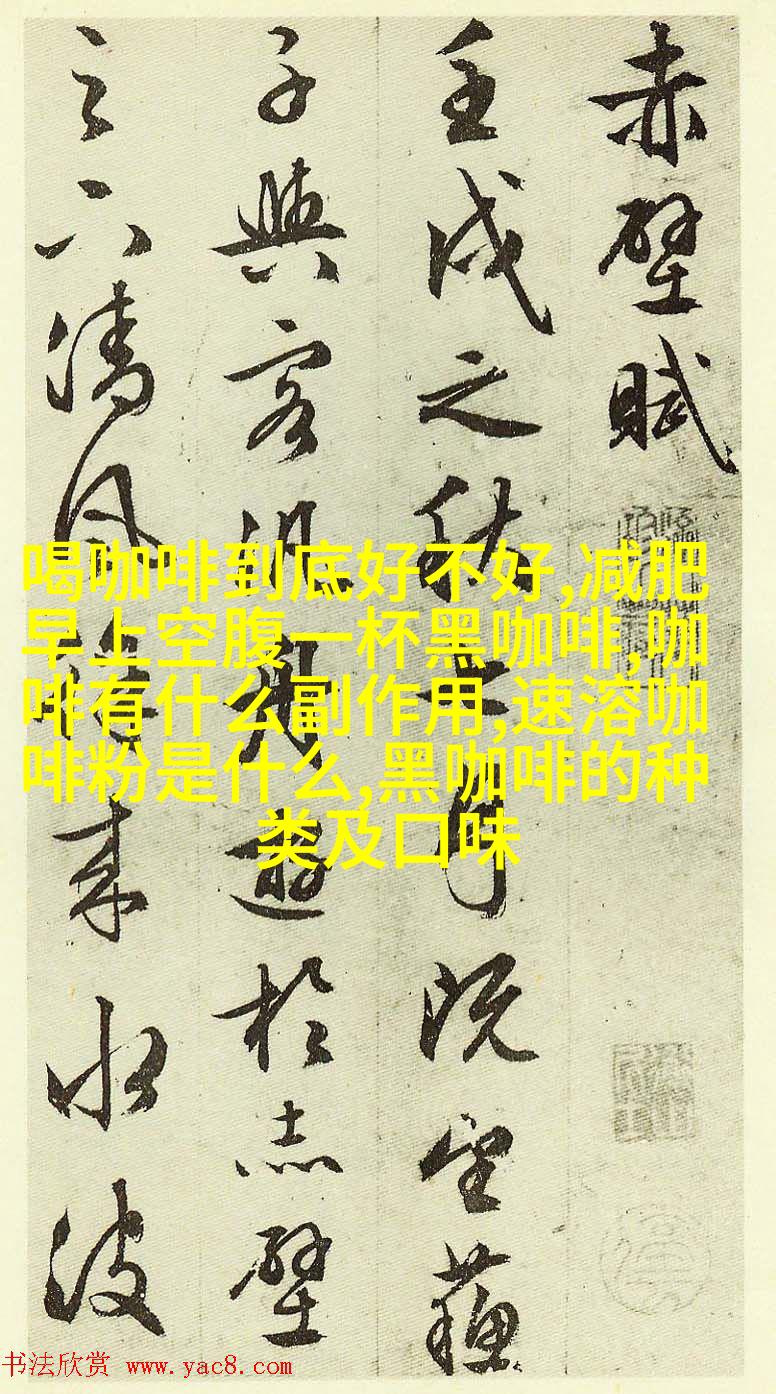 赤壁賦
壬戌之秋七月既望蘇
子與客汎舟遊於赤壁
之下清風徐來水波
喝咖啡到底好不好,减肥
早上空腹一杯黑咖啡,咖
啡有什么副作用,速溶咖
啡粉是什么,黑咖啡的种
类及口味
书法欣赏 www.yac8.com